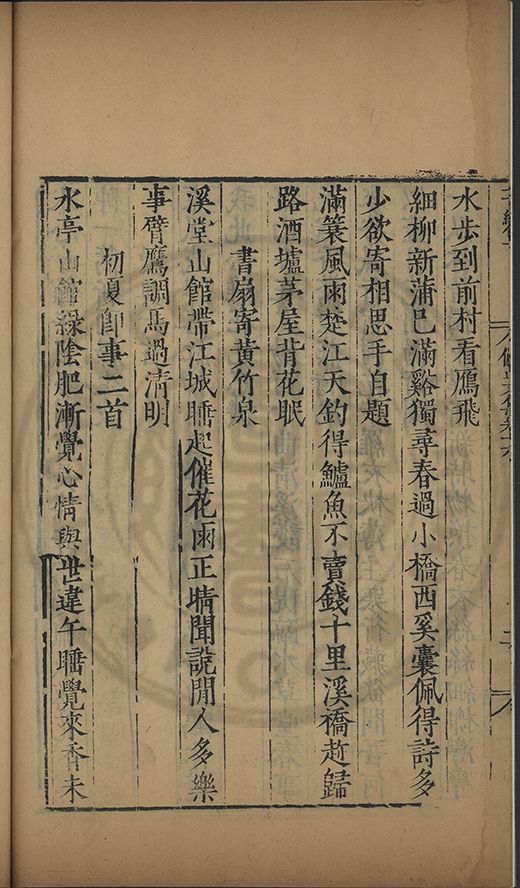 水步到前村看鴈飛
細柳新蒲巳滿谿獨尋春過小橋西奚囊佩得詩多
少欲寄相思手自題
滿簑風雨楚江天釣得鱸魚不賣錢十里溪橋趂歸
路酒壚茅屋背花眠
書扇寄黄竹泉
溪堂山館帶江城睡起催花雨正晴聞說閒人多樂
事臂鷹調馬過清明
初夏卽事二首
水亭山館綠陰肥漸覺心情與世違午睡覺來香未